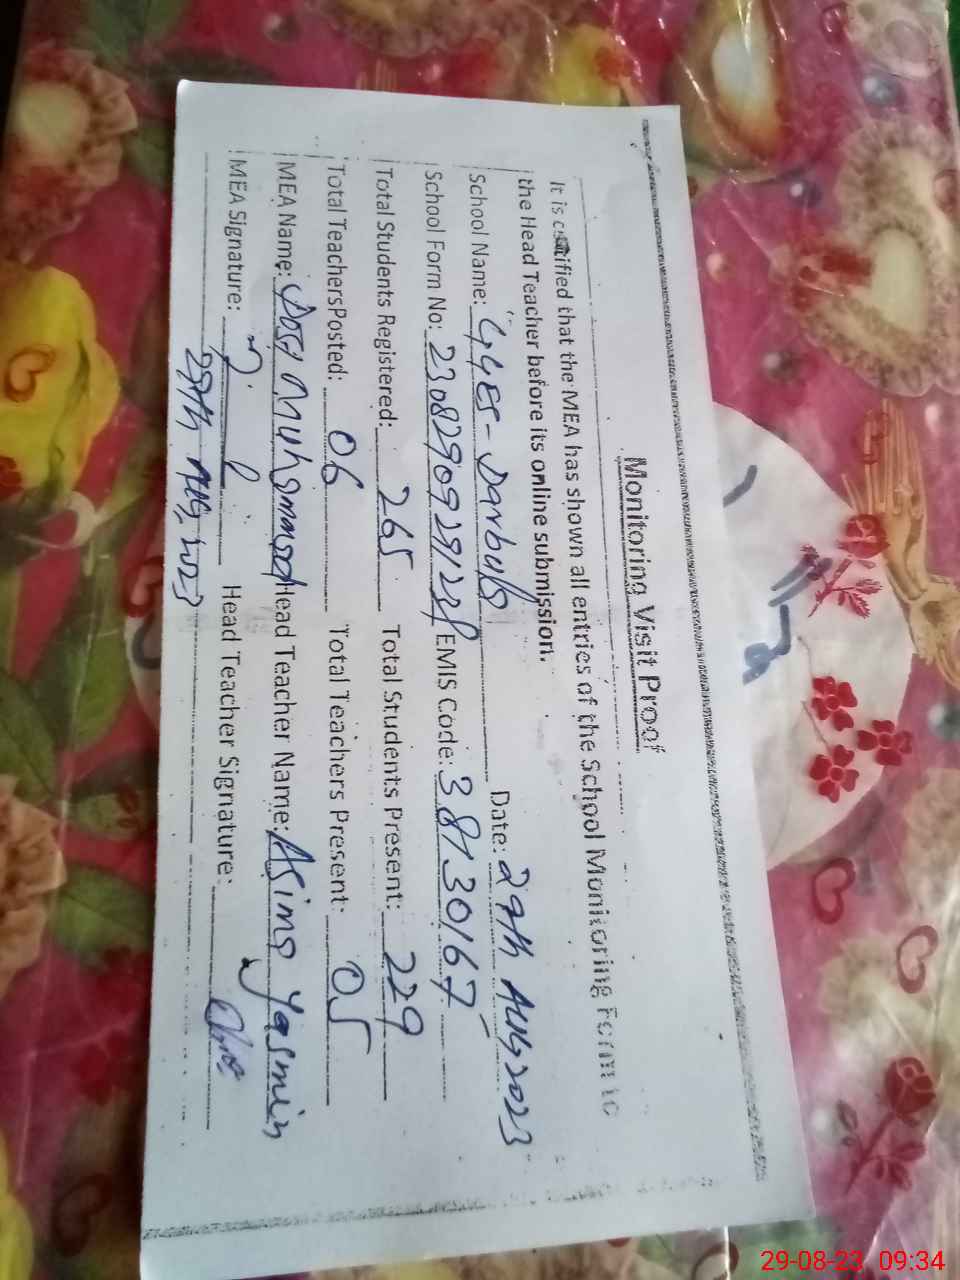 Monitoring Visit Proof
It is certified that the MEA has shown all entries of the School Monitoring Form to
the Head Teacher before its online submission.
School Name: GGES- Date: 29th Aug 2023
School Form No: EMIS Code: 38130167
Total Students Registered: 265 Total Students Present: 229
Total TeachersPosted: 06 Total Teachers Present: 05
MEA Name: Muhammad Head Teacher Name: Asima Yasmin
MEA Signature: Head Teacher Signature:
29th Aug, 2023
29-08-23 09:34